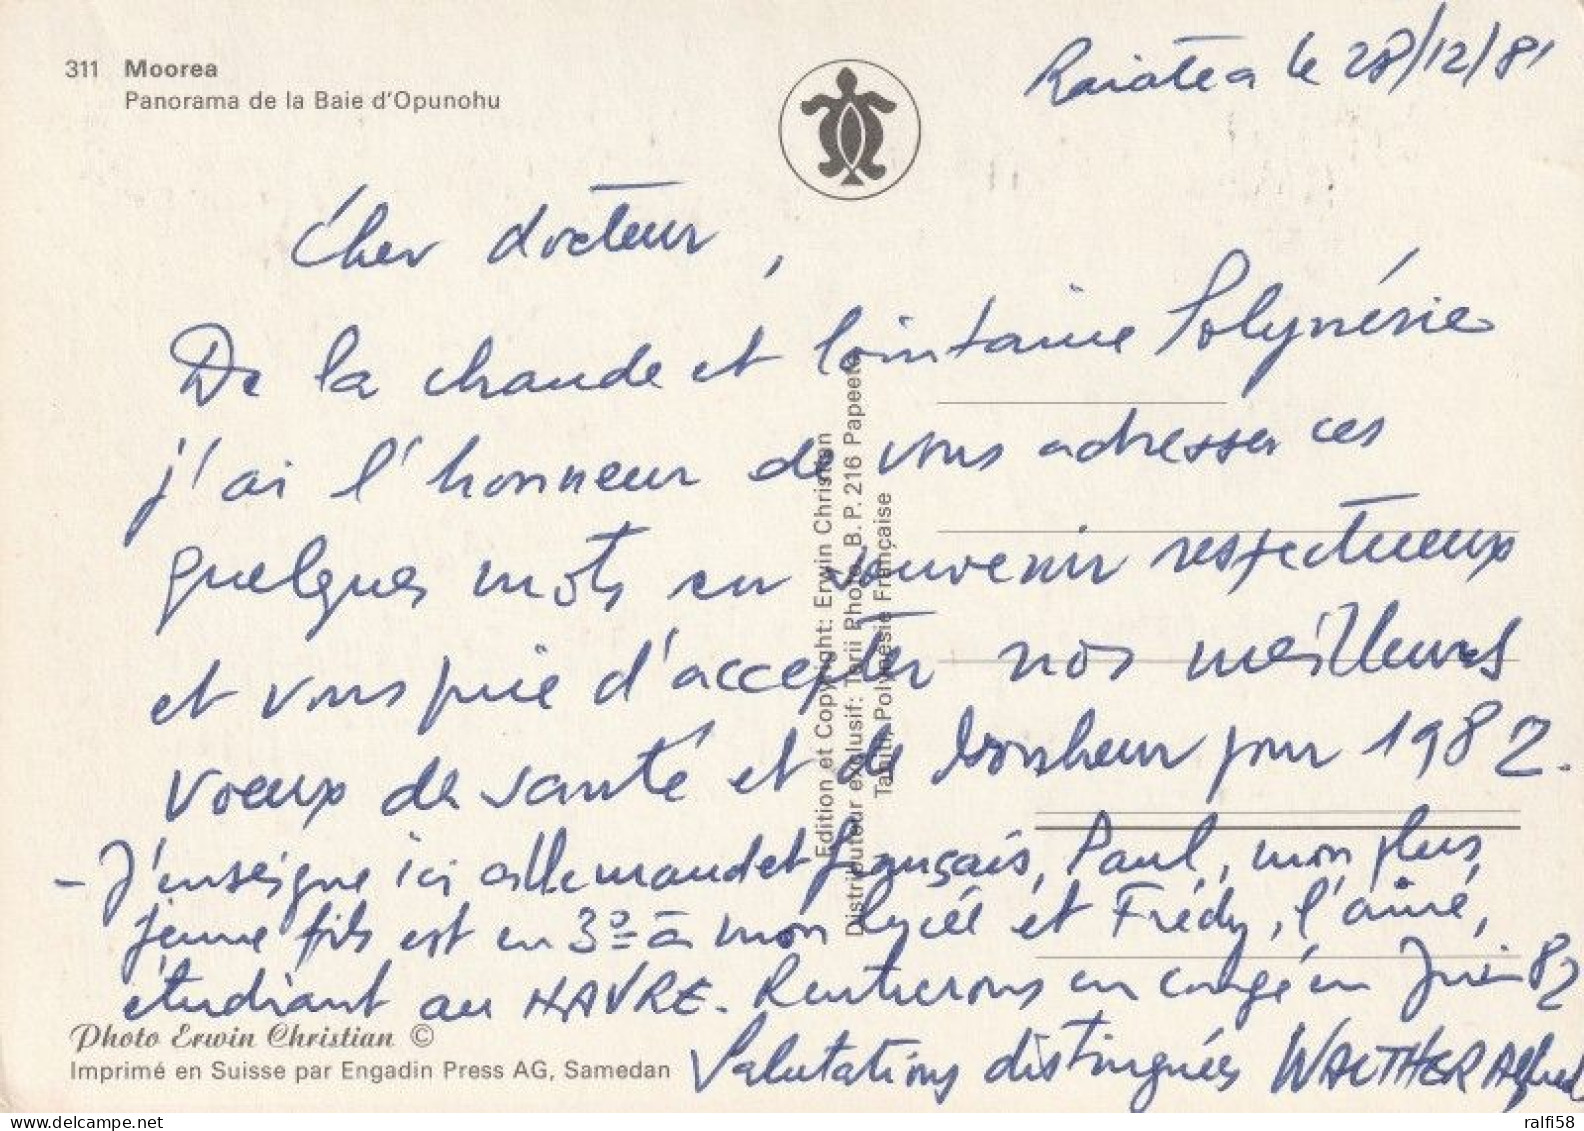 311 Moorea
Panorama de la Baie d'Opunohu
Raiatea le 28/12/81
Cher docteur,
De la chaude et lointaine Polynésie
j'ai l'honneur de vous adresser ces
quelques mots en souvenir respectueux
et vous prie d'accepter nos meilleurs
voeux de santé et de bonheur pour 1982.
- J'enseigne ici allemand et français, Paul, mon plus
jeune fils est en 3e à mon lycée et Frédy, l'aîné,
étudiant au HAVRE. Rentrerons en congé en Juin 82
Salutations distinguées WALTHER Alfred
Edition et Copyright: Erwin Christian
Distributeur exclusif: Tarii Photo, B. P. 216 Papeete
Tahiti Polynésie Française
Photo Erwin Christian ©
Imprimé en Suisse par Engadin Press AG, Samedan
delcampe.net
ralfi58